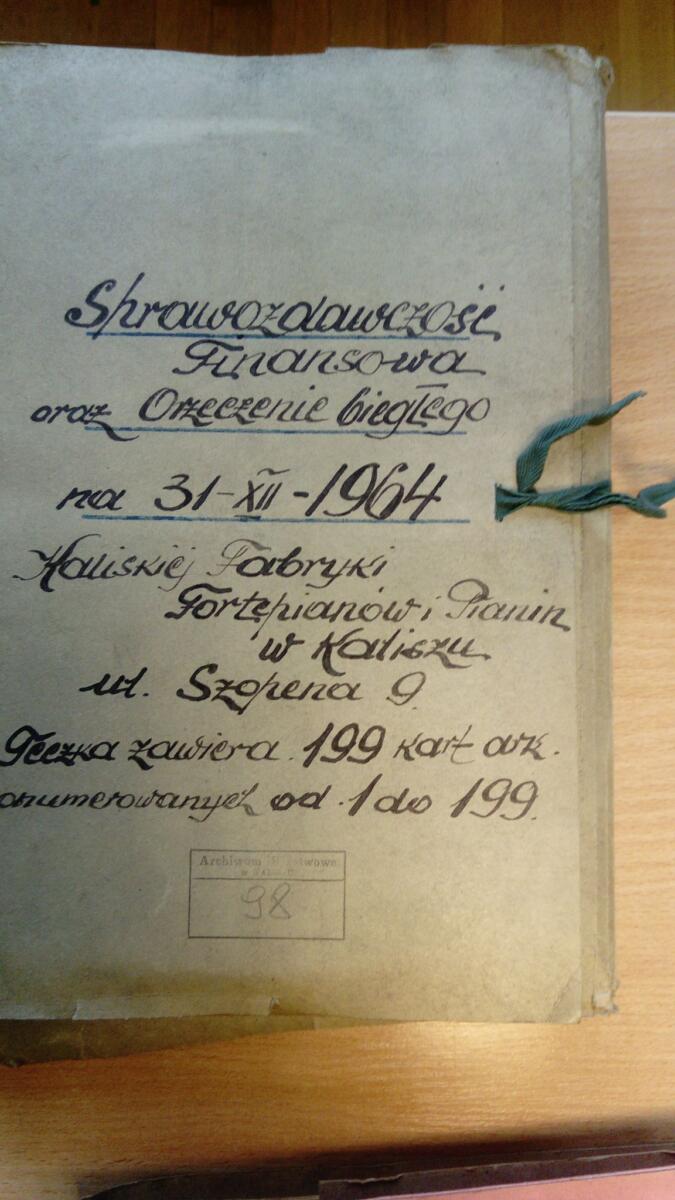 Sprawozdawczość
Finansowa
oraz Orzeczenie biegłego
na 31-XII-1964
Kaliskiej Fabryki
Fortepianów i Pianin
w Kaliszu
ul. Szopena 9
Teczka zawiera 199 kart ark.
onumerowanych od 1 do 199.
Archiwum Państwowe
w Kaliszu
98